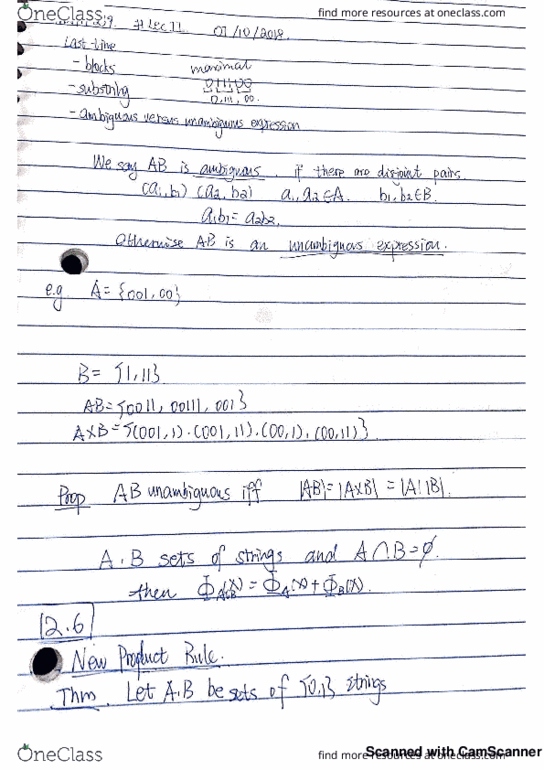 OneClass
find more resources at oneclass.com
#Lec 11 01/10/2018.
Last line
- blocks maximal
- substring 0 111 00
0, 111, 00.
- ambiguous versus unambiguous expression
We say AB is ambiguous. if there are disjoint pairs.
(a1, b1) (a2, b2) a1, a2 ∈ A. b1, b2 ∈ B.
a1b1 = a2b2.
Otherwise AB is an unambiguous expression.
e.g A = {001, 00}
B = {1, 11}
AB = {0011, 00111, 001}
A×B = {(001, 1). (001, 11). (00, 1). (00, 11)}
Prop AB unambiguous iff |AB| = |A×B| = |A||B|.
A, B sets of strings and A ∩ B = ∅.
then (x) = Φ_A(x) + Φ_B(x).
12.6
New Product Rule.
Thm. Let A, B be sets of {0,1} strings
OneClass
find more resources at oneclass.com
Scanned with CamScanner